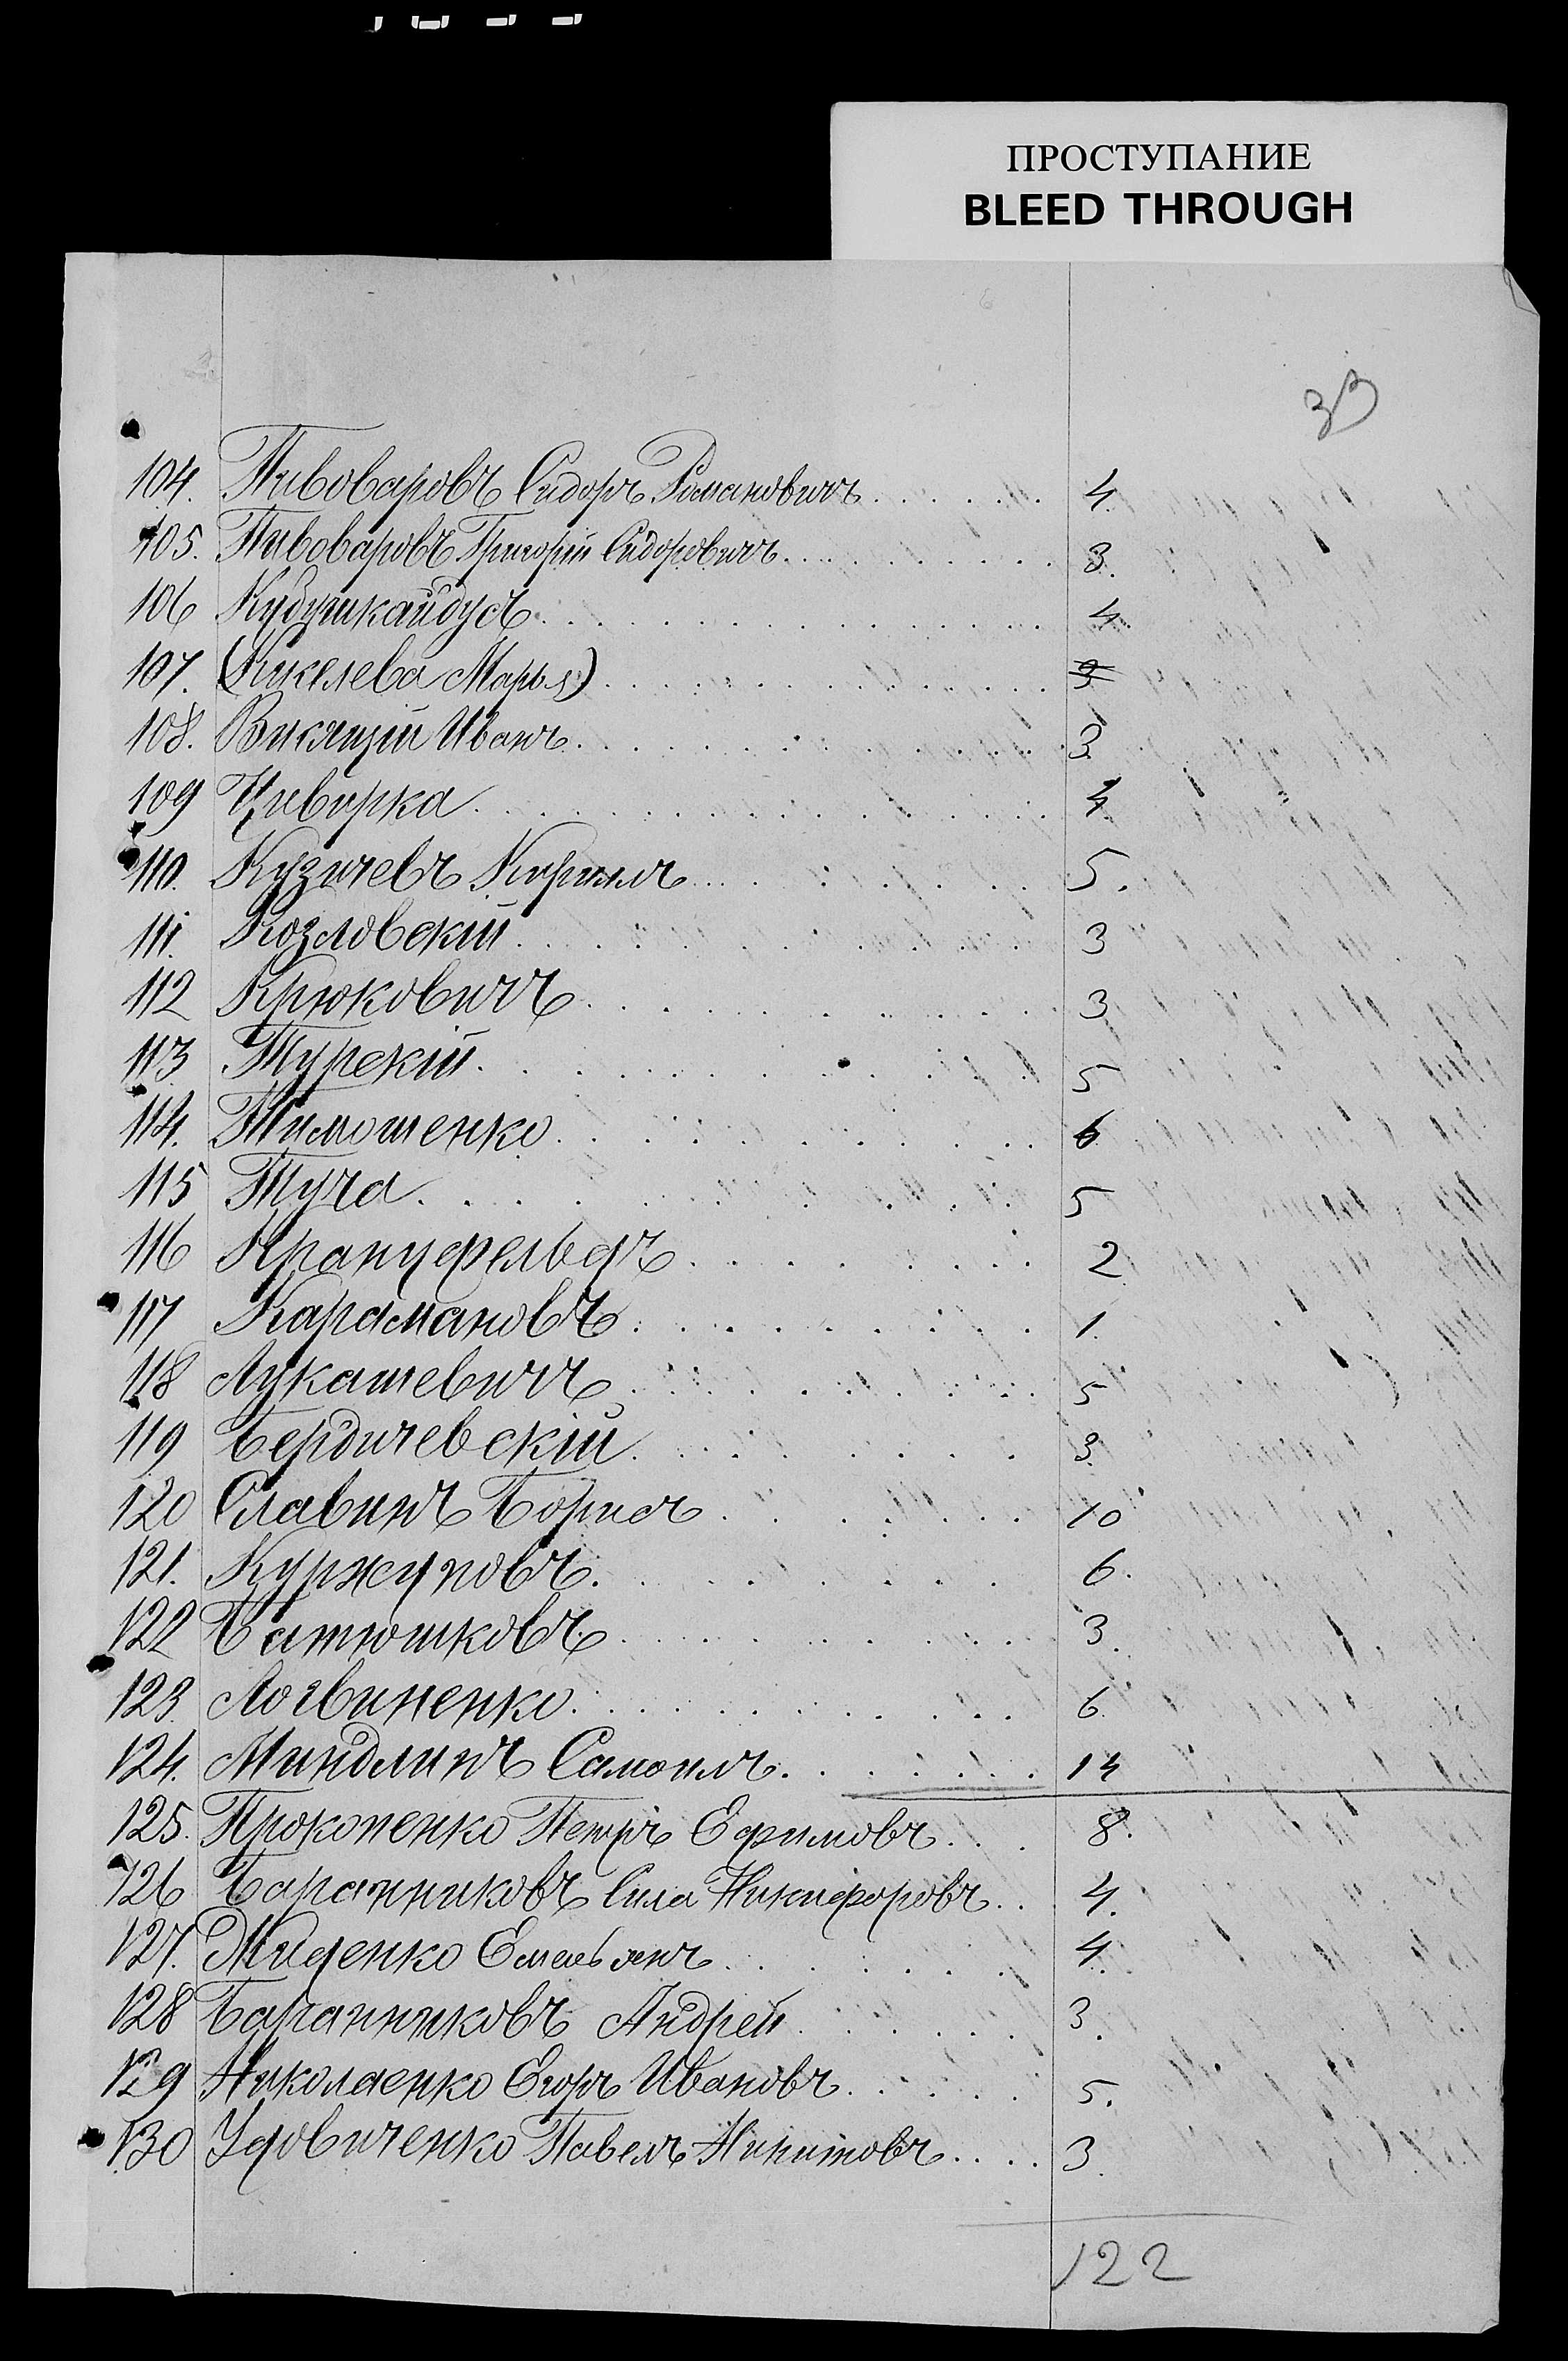 ПРОСТУПАНИЕ
BLEED THROUGH
33
104. Пивоваровъ Сидоръ Романовичъ 4.
105. Пивоваровъ Григорій Сидоровичъ 3.
106 Кубушкайдусъ 4.
107. (Кикелева Марья) 3
108. Висящій Иванъ 3.
109 Циворка 4.
110. Кузичевъ Кирилъ 5.
111. Козловскій 3
112 Крюковичъ 3
113 Турскій 5
114. Тимошенко 6
115 Туча 5
116 Кранцфельдъ 2.
117 Карамановъ 1.
118 Лукашевичъ 5
119 Бердичевскій 3.
120 Славинъ Борисъ 10
121. Куржуповъ 6.
122 Батюшковъ 3.
123. Логвиненко 6.
124. Миндлинъ Самоилъ 14
125. Прокопенко Петръ Ефимовъ 8.
126 Баранниковъ Сила Никифоровъ 4.
127. Жиденко Емельянъ 4.
128 Баранниковъ Андрей 3.
129 Николаенко Егоръ Ивановъ 5.
130 Удовиченко Павелъ Никитовъ 3.
122